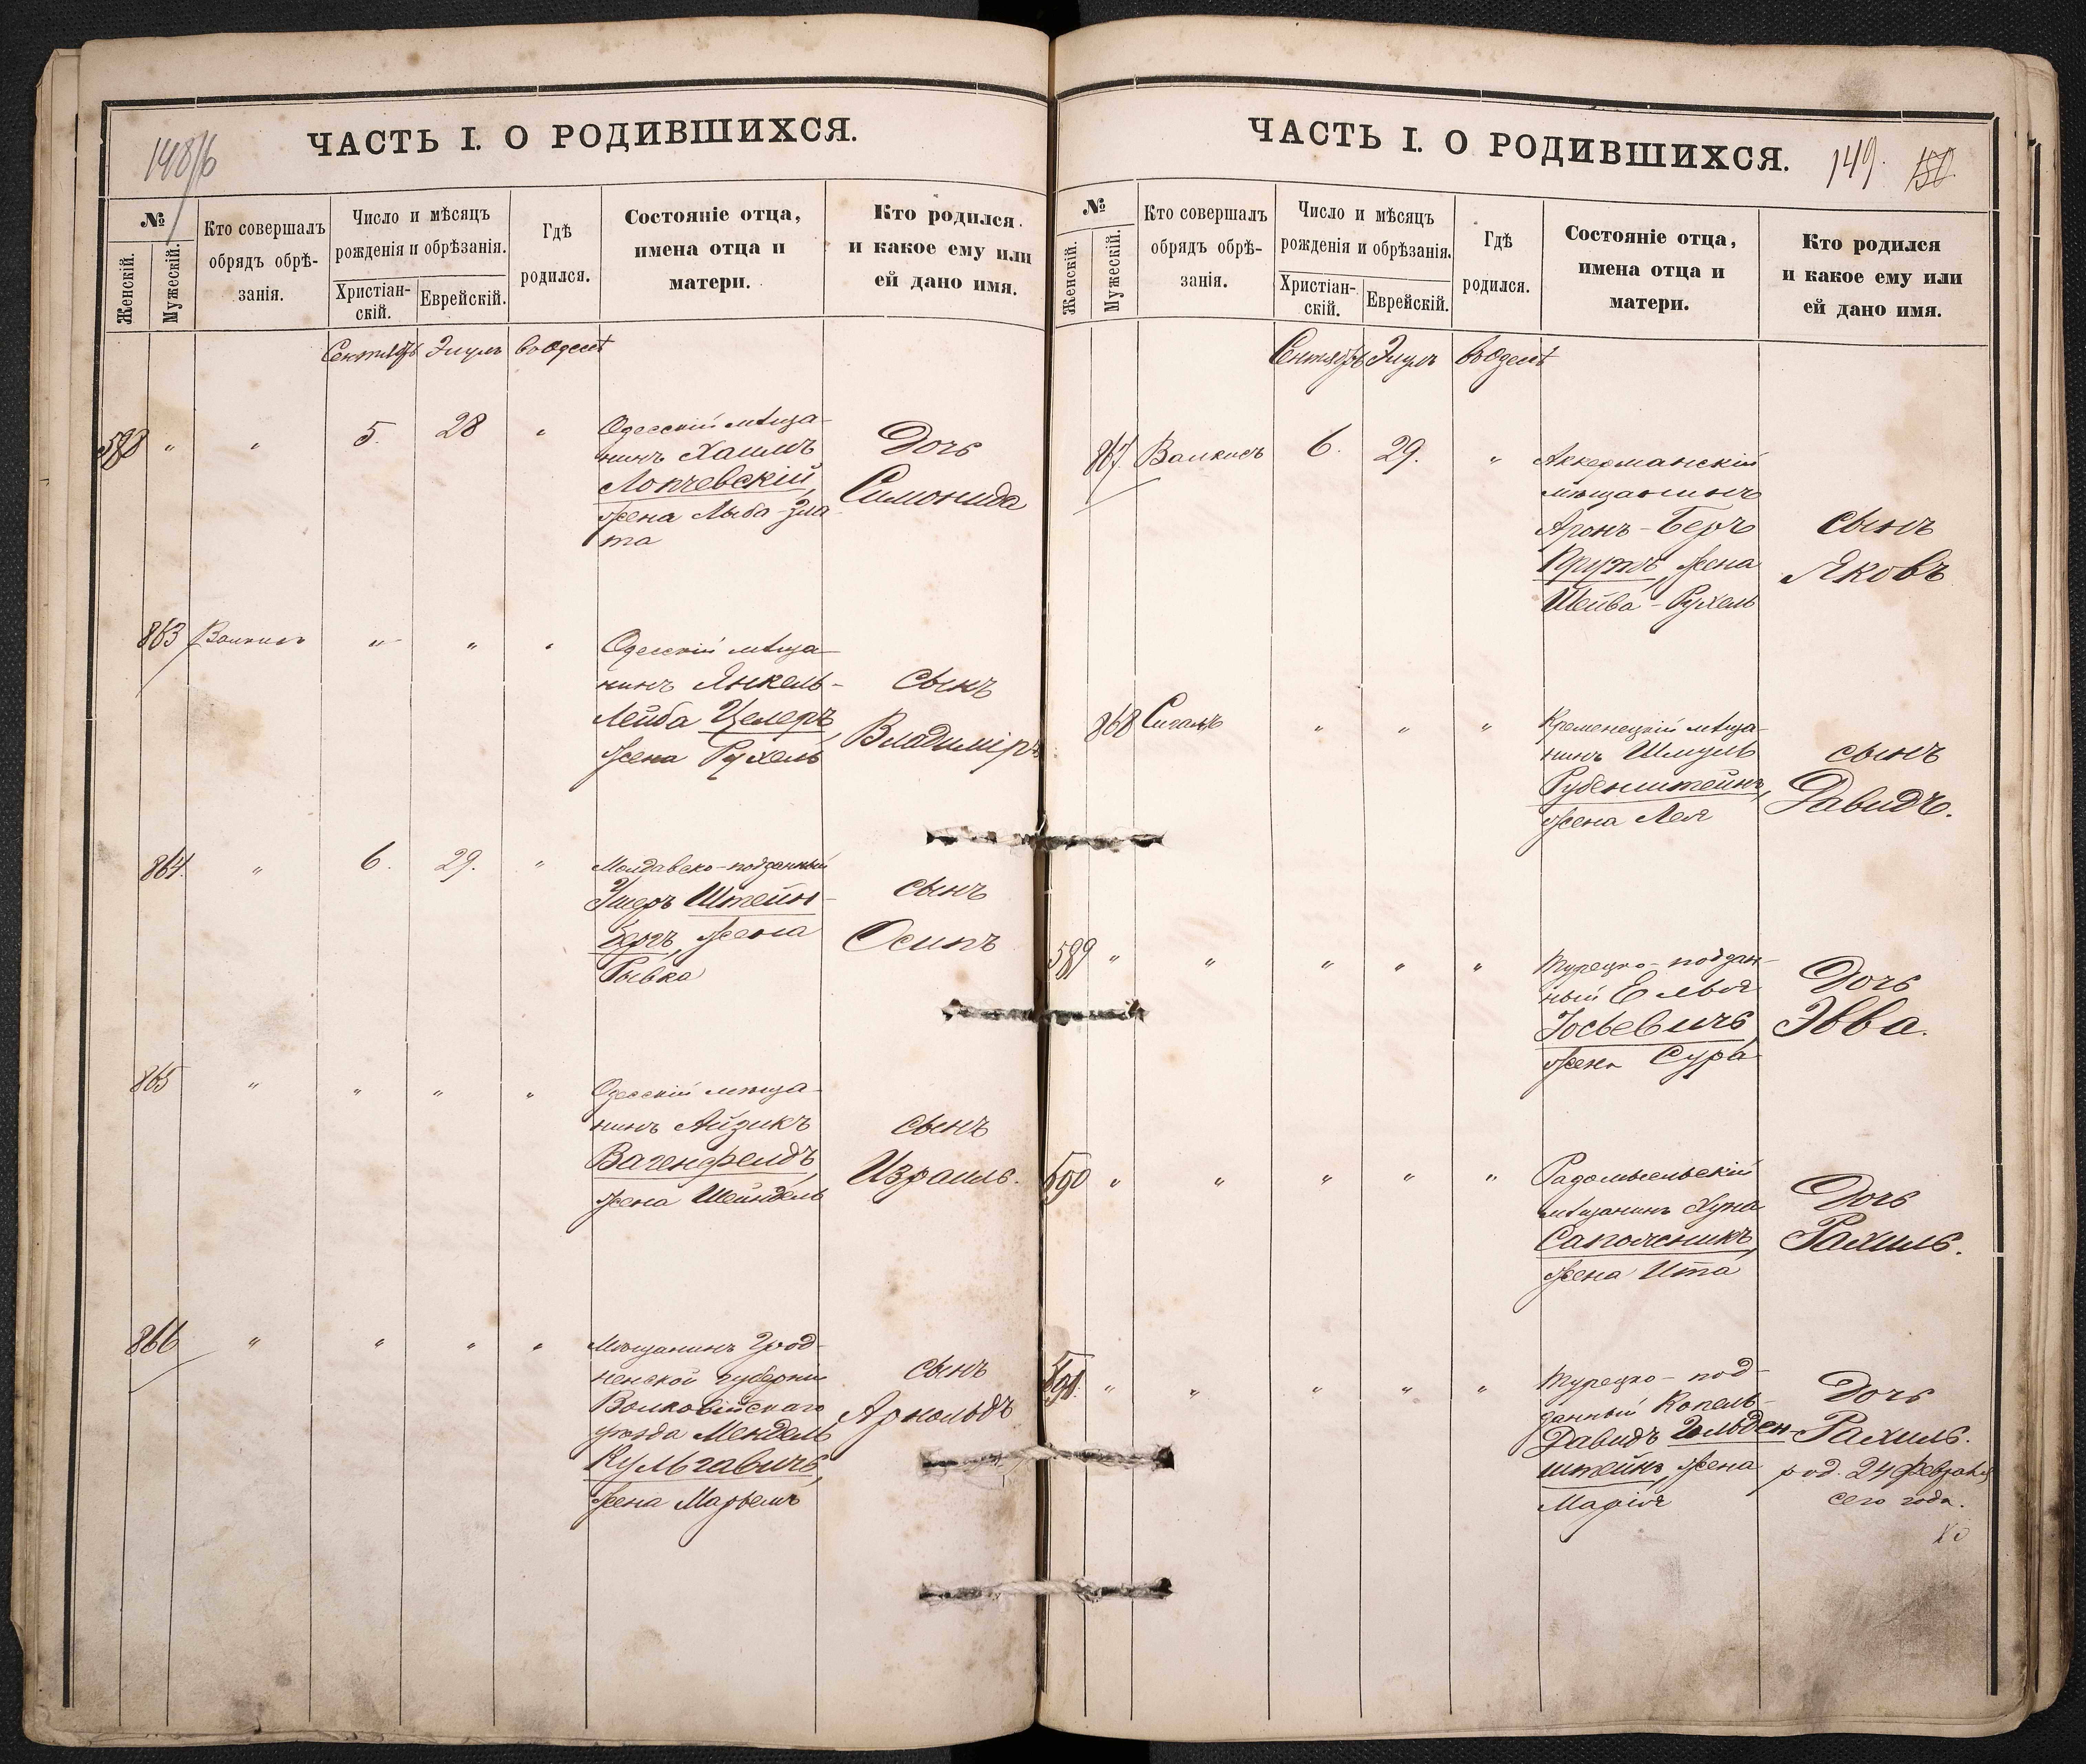 148/б
ЧАСТЬ I. О РОДИВШИХСЯ.
№
Женскій.
Мужескій.
Кто совершалъ
обрядъ обрѣ-
занія.
Число и мѣсяцъ
рожденія и обрѣзанія.
Христіан-
скій.
Еврейскій.
Гдѣ
родился.
Состояніе отца,
имена отца и
матери.
Кто родился
и какое ему или
ей дано имя.
Сентябрь Элулъ въ Одессѣ
588 " " 5. 28 "
Одесскій мѣща-
нинъ Хаимъ
Лопчевскій,
жена Лыба-Зла
та
Дочь
Симонида
863 Валкисъ " " "
Одесскій мѣща-
нинъ Янкель-
Лейба Целеръ,
жена Рухель
сынъ
Владиміръ
864. " 6. 29. "
Молдавско-подданный
Ушеръ Штейн-
бергъ, жена
Рывка
сынъ
Осипъ
865 " " " "
Одесскій мѣща-
нинъ Айзикъ
Вагенфелдъ,
жена Шейндель
сынъ
Израиль.
866 " " " "
Мѣщанинъ Грод-
ненской губерніи
Волковійскаго
уѣзда Мендель
Кульгавичъ,
жена Марьемъ
сынъ
Арнольдъ
ЧАСТЬ I. О РОДИВШИХСЯ.
149. 150
№
Женскій.
Мужескій.
Кто совершалъ
обрядъ обрѣ-
занія.
Число и мѣсяцъ
рожденія и обрѣзанія.
Христіан-
скій.
Еврейскій.
Гдѣ
родился.
Состояніе отца,
имена отца и
матери.
Кто родился
и какое ему или
ей дано имя.
Сентябрь Элулъ въ Одессѣ
867 Валкисъ 6. 29. "
Аккерманскій
мѣщанинъ
Аронъ-Беръ
Прутъ, жена
Шейва-Рухель
сынъ
Яковъ
868 Сигалъ " " "
Кременецкій мѣща-
нинъ Шмуль
Рубенштейнъ,
жена Лея
сынъ
Давидъ.
589 " " " " "
Турецко-поддан-
ный Елья
Іосьевичъ,
жена Сура
Дочь
Эвва.
590 " " " " "
Радомысльскій
мѣщанинъ Хуна
Сапожникъ,
жена Ита
Дочь
Рахиль.
591. " " " " "
Турецко-под
данный Копель-
Давидъ Гольден-
штейнъ, жена
Марія
Дочь
Рахиль.
род. 24 февраля
сего года.